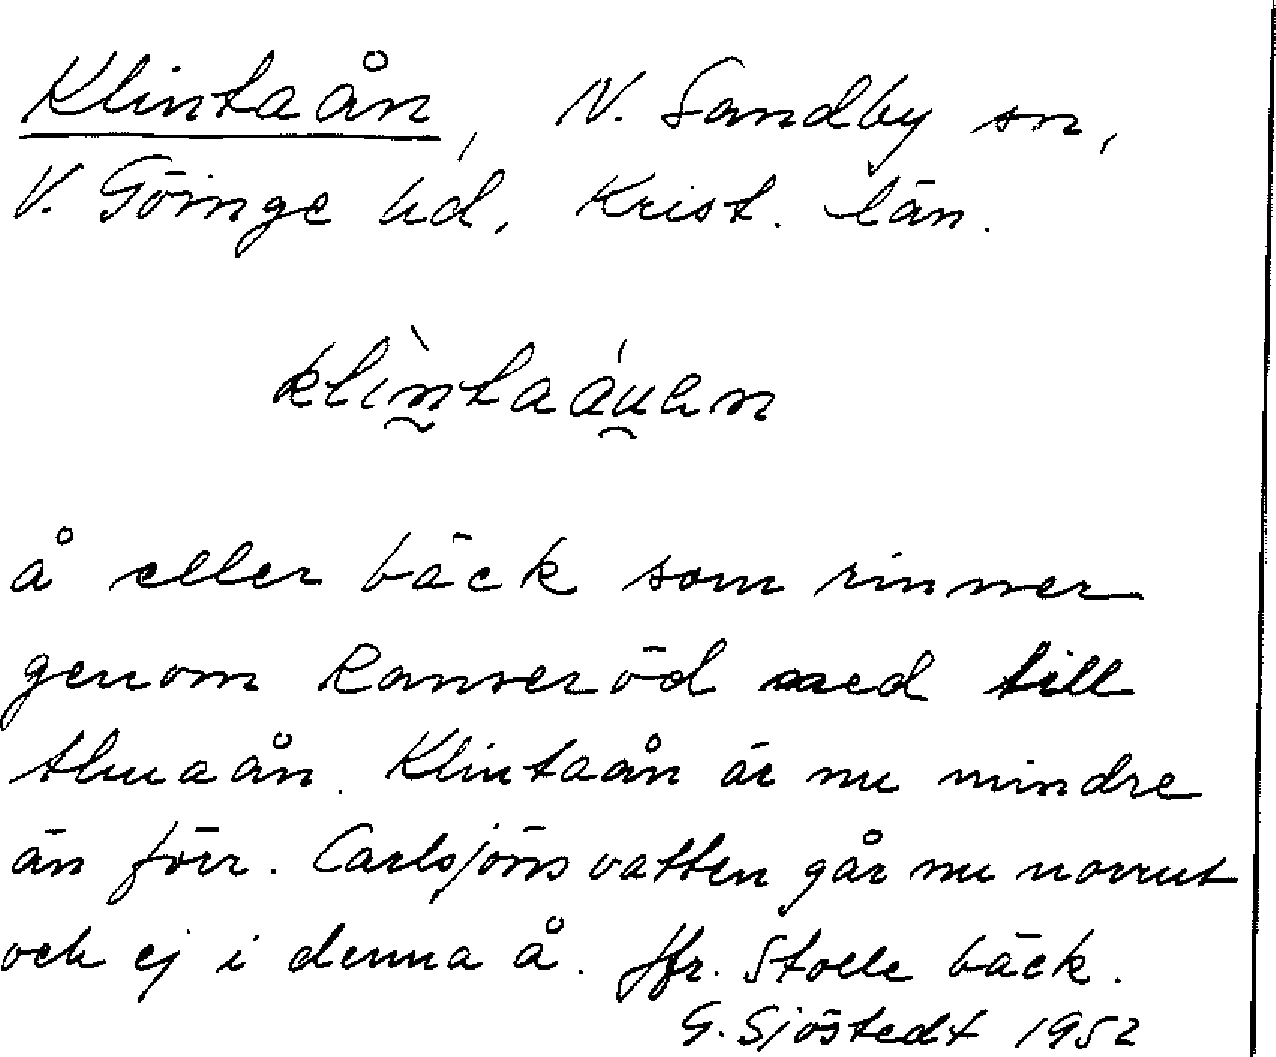 Klintaån, N. Sandby sn,
V. Göinge hd, Krist. län.
klìntaáuen
å eller bäck som rinner
genom Ranseröd ned till
Almaån. Klintaån är nu mindre
än förr. Carlsjöns vatten går nu norrut
och ej i denna å. Jfr. Stolle bäck.
G. Sjöstedt 1952